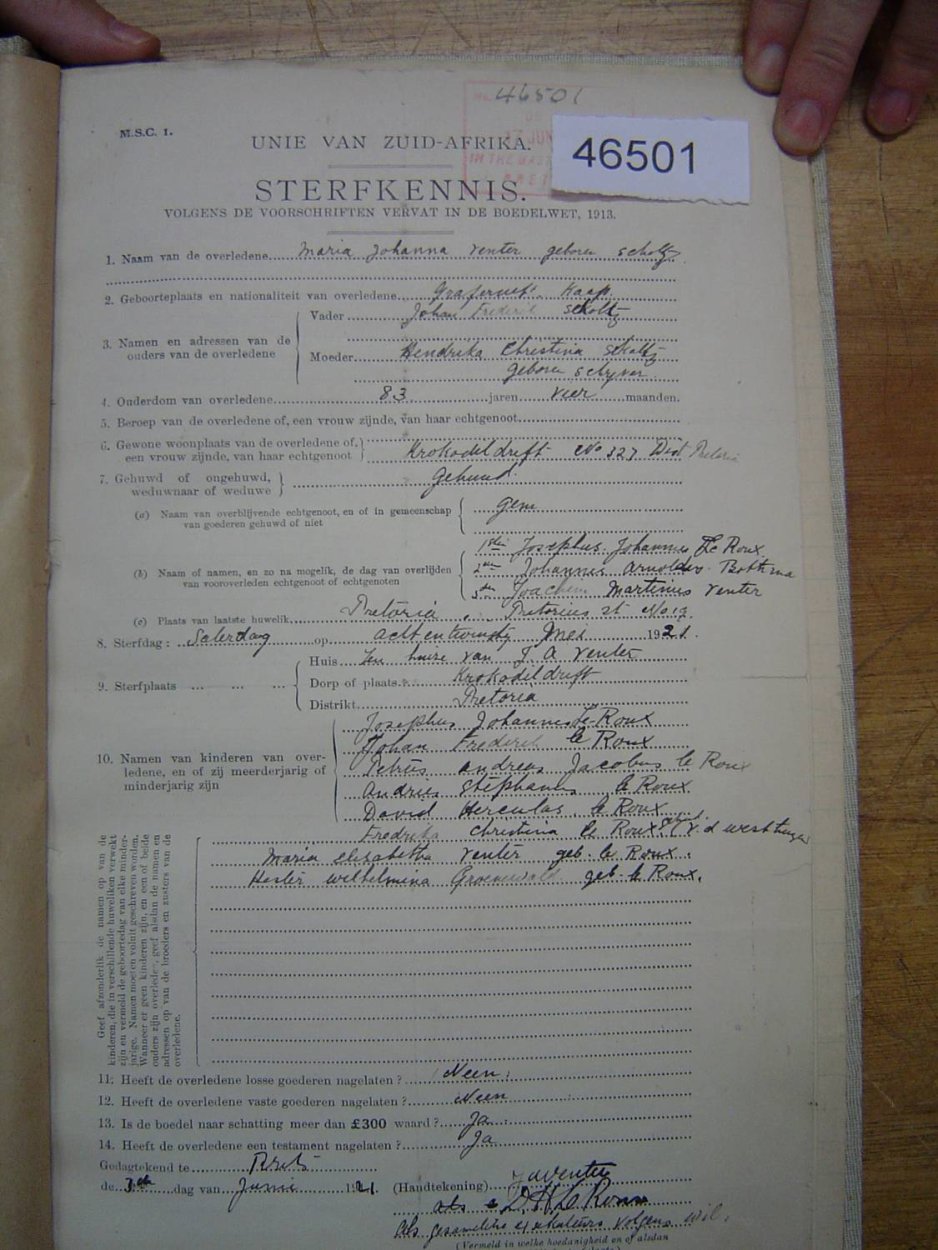 46501
M.S.C. 1.
UNIE VAN ZUID-AFRIKA.
46501
STERFKENNIS.
VOLGENS DE VOORSCHRIFTEN VERVAT IN DE BOEDELWET, 1913.
1. Naam van de overledene Maria Johanna Venter geboren Scholtz
2. Geboorteplaats en nationaliteit van overledene Kaap
3. Namen en adressen van de ouders van de overledene
Vader Johan Frederik Scholtz
Moeder Hendrika Christina Scholtz
geboren
4. Ouderdom van overledene 83 jaren vier maanden.
5. Beroep van de overledene of, een vrouw zijnde, van haar echtgenoot
6. Gewone woonplaats van de overledene of, een vrouw zijnde, van haar echtgenoot Krokodildrift No 327 Dist Pretoria
7. Gehuwd of ongehuwd, weduwnaar of weduwe
(a) Naam van overblijvende echtgenoot, en of in gemeenschap van goederen gehuwd of niet geen
(b) Naam of namen, en zo na mogelik, de dag van overlijden van vooroverleden echtgenoot of echtgenoten
1ste Josephus Johannes Le Roux
2de Johannes Arnoldus Bothma
3de Joachim Martinus Venter
(c) Plaats van laatste huwelik Pretoria, Pretorius st No
8. Sterfdag: Saterdag op acht en twintig Mei 1921.
9. Sterfplaats
Huis Ten huize van J. A Venter
Dorp of plaats Krokodildrift
Distrikt Pretoria
10. Namen van kinderen van overledene, en of zij meerderjarig of minderjarig zijn
Josephus Johannes Le Roux
Johan Frederik le Roux
Petrus Andreas Jacobus le Roux
Andries Stephanus le Roux
David Herculas le Roux
Fredrika Christina le Roux v d westhuizen
Maria Elisabetha Venter geb. le Roux.
Hester Wilhelmina Groenewald geb. le Roux.
Geef afzonderlik de namen op van de
kinderen, die in verschillende huweliken verwekt
zijn en vermeld de geboortedag van elke minder-
jarige. Namen moeten voluit geschreven worden.
Wanneer er geen kinderen zijn, en een of beide
ouders zijn overleden, geef alsdan de namen en
adressen op van de broeders en zusters van de
overledene.
11. Heeft de overledene losse goederen nagelaten? Neen
12. Heeft de overledene vaste goederen nagelaten? Neen
13. Is de boedel naar schatting meer dan £300 waard? Ja
14. Heeft de overledene een testament nagelaten? Ja
Gedagtekend te Brits
de 3de dag van Junie 1921 (Handtekening) JAVenter
als D H Le Roux
als gesamelike eksekuteurs volgens wil.
(Vermeld in welke hoedanigheid en of alsdan